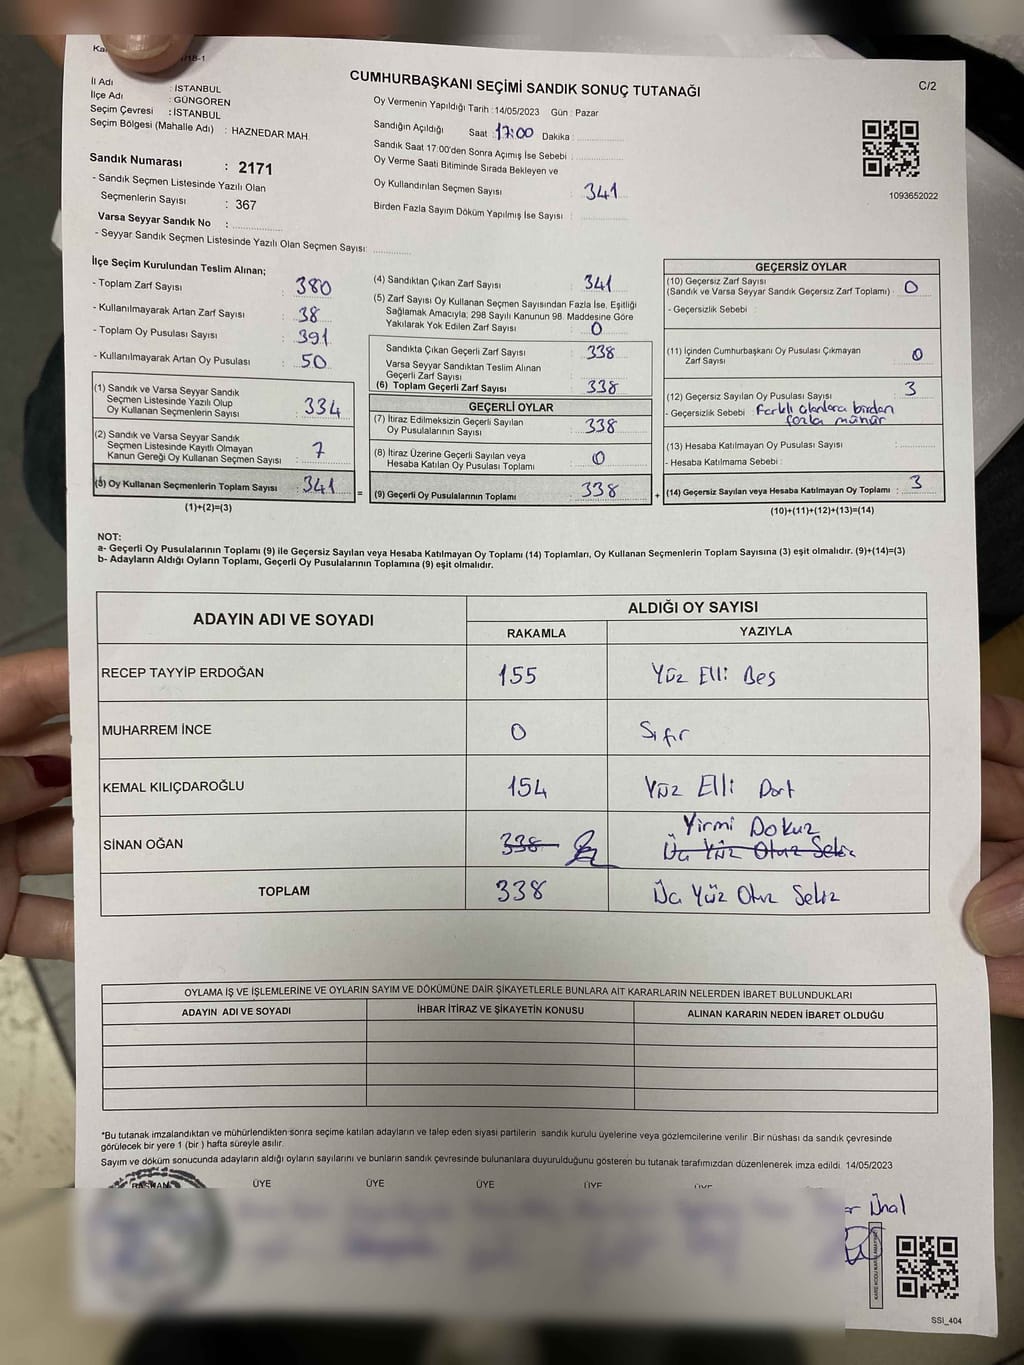 CUMHURBAŞKANI SEÇİMİ SANDIK SONUÇ TUTANAĞI
C/2
İl Adı : İSTANBUL
İlçe Adı : GÜNGÖREN
Seçim Çevresi : İSTANBUL
Seçim Bölgesi (Mahalle Adı) : HAZNEDAR MAH.
Sandık Numarası : 2171
- Sandık Seçmen Listesinde Yazılı Olan
Seçmenlerin Sayısı : 367
Varsa Seyyar Sandık No :
- Seyyar Sandık Seçmen Listesinde Yazılı Olan Seçmen Sayısı:
Oy Vermenin Yapıldığı Tarih : 14/05/2023 Gün : Pazar
Sandığın Açıldığı Saat : 17:00 Dakika :
Sandık Saat 17:00'den Sonra Açımış İse Sebebi :
Oy Verme Saati Bitiminde Sırada Bekleyen ve
Oy Kullandırılan Seçmen Sayısı : 341
Birden Fazla Sayım Döküm Yapılmış İse Sayısı :
1093652022
İlçe Seçim Kurulundan Teslim Alınan;
- Toplam Zarf Sayısı : 380
- Kullanılmayarak Artan Zarf Sayısı : 38
- Toplam Oy Pusulası Sayısı : 391
- Kullanılmayarak Artan Oy Pusulası : 50
(1) Sandık ve Varsa Seyyar Sandık
Seçmen Listesinde Yazılı Olup
Oy Kullanan Seçmenlerin Sayısı : 334
(2) Sandık ve Varsa Seyyar Sandık
Seçmen Listesinde Kayıtlı Olmayan
Kanun Gereği Oy Kullanan Seçmen Sayısı : 7
(3) Oy Kullanan Seçmenlerin Toplam Sayısı : 341
(1)+(2)=(3)
(4) Sandıktan Çıkan Zarf Sayısı : 341
(5) Zarf Sayısı Oy Kullanan Seçmen Sayısından Fazla İse, Eşitliği
Sağlamak Amacıyla; 298 Sayılı Kanunun 98. Maddesine Göre
Yakılarak Yok Edilen Zarf Sayısı : 0
Sandıkta Çıkan Geçerli Zarf Sayısı : 338
Varsa Seyyar Sandıktan Teslim Alınan
Geçerli Zarf Sayısı :
(6) Toplam Geçerli Zarf Sayısı : 338
GEÇERLİ OYLAR
(7) İtiraz Edilmeksizin Geçerli Sayılan
Oy Pusulalarının Sayısı : 338
(8) İtiraz Üzerine Geçerli Sayılan veya
Hesaba Katılan Oy Pusulası Toplamı : 0
= (9) Geçerli Oy Pusulalarının Toplamı : 338
GEÇERSİZ OYLAR
(10) Geçersiz Zarf Sayısı
(Sandık ve Varsa Seyyar Sandık Geçersiz Zarf Toplamı) : 0
- Geçersizlik Sebebi :
(11) İçinden Cumhurbaşkanı Oy Pusulası Çıkmayan
Zarf Sayısı : 0
(12) Geçersiz Sayılan Oy Pusulası Sayısı : 3
- Geçersizlik Sebebi : Farklı alanlara birden
fazla mühür
(13) Hesaba Katılmayan Oy Pusulası Sayısı :
- Hesaba Katılmama Sebebi :
+ (14) Geçersiz Sayılan veya Hesaba Katılmayan Oy Toplamı : 3
(10)+(11)+(12)+(13)=(14)
NOT:
a- Geçerli Oy Pusulalarının Toplamı (9) ile Geçersiz Sayılan veya Hesaba Katılmayan Oy Toplamı (14) Toplamları, Oy Kullanan Seçmenlerin Toplam Sayısına (3) eşit olmalıdır. (9)+(14)=(3)
b- Adayların Aldığı Oyların Toplamı, Geçerli Oy Pusulalarının Toplamına (9) eşit olmalıdır.
ADAYIN ADI VE SOYADI
ALDIĞI OY SAYISI
RAKAMLA YAZIYLA
RECEP TAYYİP ERDOĞAN 155 Yüz Elli Beş
MUHARREM İNCE 0 Sıfır
KEMAL KILIÇDAROĞLU 154 Yüz Elli Dört
Yirmi Dokuz
SİNAN OĞAN 338 Üç Yüz Otuz Sekiz
TOPLAM 338 Üç Yüz Otuz Sekiz
OYLAMA İŞ VE İŞLEMLERİNE VE OYLARIN SAYIM VE DÖKÜMÜNE DAİR ŞİKAYETLERLE BUNLARA AİT KARARLARIN NELERDEN İBARET BULUNDUKLARI
ADAYIN ADI VE SOYADI İHBAR İTİRAZ VE ŞİKAYETİN KONUSU ALINAN KARARIN NEDEN İBARET OLDUĞU
*Bu tutanak imzalandıktan ve mühürlendikten sonra seçime katılan adayların ve talep eden siyasi partilerin sandık kurulu üyelerine veya gözlemcilerine verilir. Bir nüshası da sandık çevresinde
görülecek bir yere 1 (bir ) hafta süreyle asılır.
Sayım ve döküm sonucunda adayların aldığı oyların sayılarını ve bunların sandık çevresinde bulunanlara duyurulduğunu gösteren bu tutanak tarafımızdan düzenlenerek imza edildi. 14/05/2023
BAŞKAN ÜYE ÜYE ÜYE ÜYE ÜYE
Ünal
SSI_404